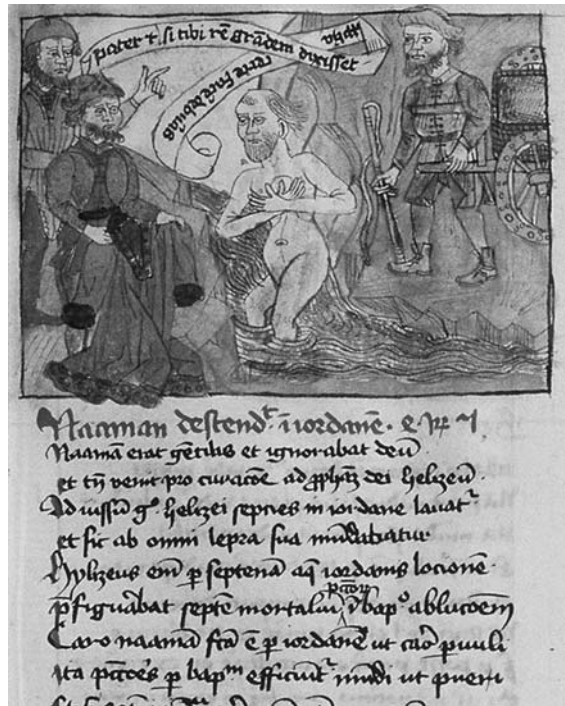 pater & si tibi rē grādem dixisset
ppħa
certe facere debuisses
Naaman descend^t ī iordanē
Naamā erat gētilis et ignorabat deū
et tn̄ venit pro curacōe ad ꝓphāz dei helizeū
Ad iussū g° helizei septies in iordane lauat^r
et sic ab omni lepra sua mūdabatur
Hylizeus em̄ ꝑ septenā aq̄ iordanis locionē
p̄figuabat septē mortaliū pctōꝝ ī bap° ablucōem
Caro naamā fcā ē ꝑ iordanē ut caro puuli
Ita pctōes ꝑ bap^m efficiūt^r mūdi ut pueri